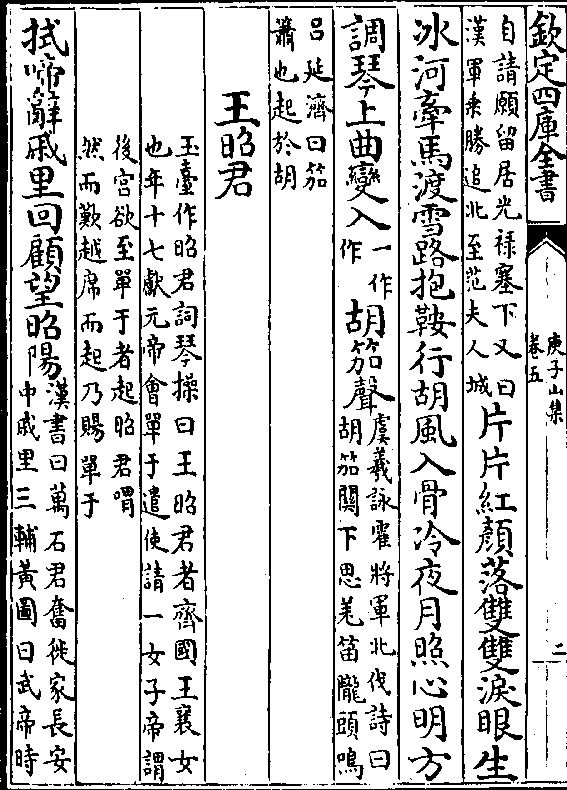 欽定四庫全書
庚子山集
卷五
二
自請願留居光祿塞下又曰
漢軍乘勝追北至范夫人城
片片紅顏落雙雙淚眼生
冰河牽馬渡雪路抱鞍行胡風入骨冷夜月照心明方
調琴上曲變入
一作
作
胡笳聲
虞羲詠霍將軍北伐詩曰
胡笳關下思羌笛隴頭鳴
吕延濟曰笳
簫也起於胡
王昭君
玉臺作昭君詞琴操曰王昭君者齊國王襄女
也年十七獻元帝會單于遣使請一女子帝謂
後宫欲至單于者起昭君喟
然而歎越席而起乃賜單于
拭啼辭戚里回顧望昭陽
漢書曰萬石君奮徙家長安
中戚里三輔黃圖曰武帝時